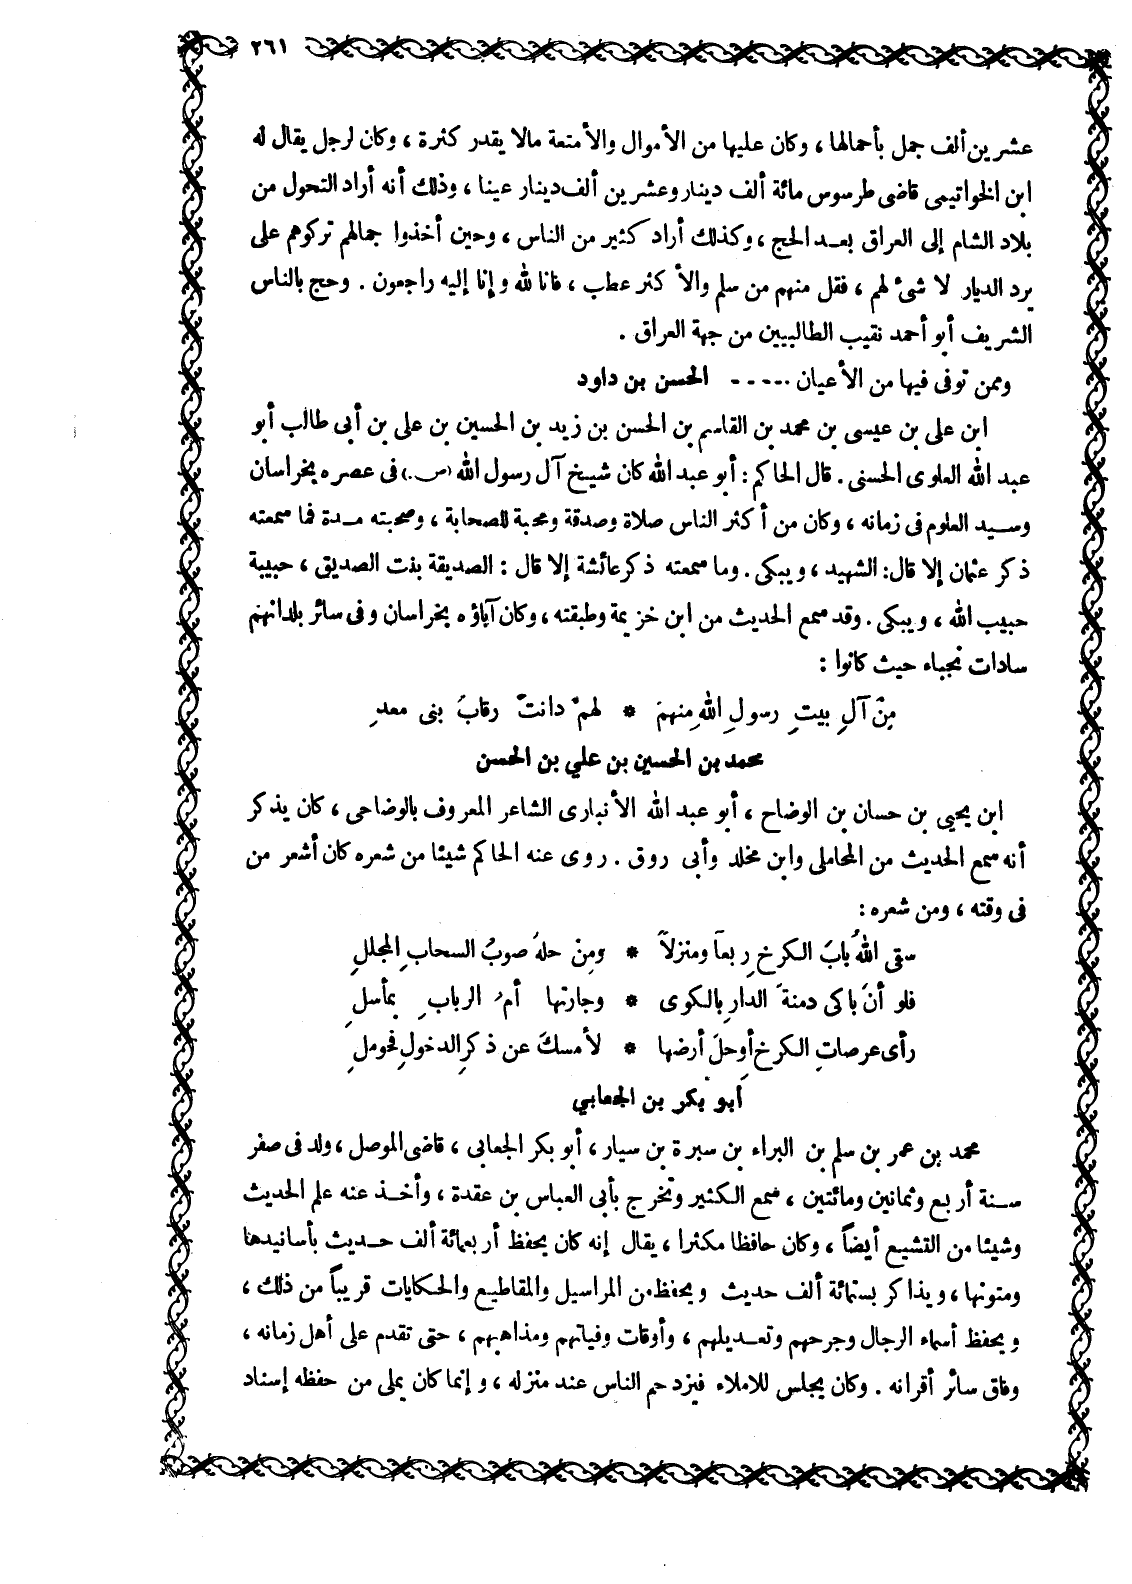 ٢٦١
عشرين ألف جمل بأحمالها ، وكان عليها من الأموال والأمتعة مالا يقدر كثرة ، وكان لرجل يقال له
ابن الخواتيمى قاضى طرسوس مائة ألف دينار وعشرين ألف دينار عينا ، وذلك أنه أراد التحول من
بلاد الشام إلى العراق بعد الحج ، وكذلك أراد كثير من الناس ، وحين أخذوا جمالهم تركوهم على
برد الديار لا شئ لهم ، فقل منهم من سلم والأكثر عطب ، فانا لله وإنا إليه راجعون . وحج بالناس
الشريف أبو أحمد نقيب الطالبيين من جهة العراق .
وممن توفى فيها من الأعيان ----- الحسن بن داود
ابن على بن عيسى بن محمد بن القاسم بن الحسن بن زيد بن الحسين بن على بن أبى طالب أبو
عبد الله العلوى الحسنى . قال الحاكم : أبو عبد الله كان شيخ آل رسول الله (ص.) فى عصره بخراسان
وسيد العلوم فى زمانه ، وكان من أكثر الناس صلاة وصدقة ومحبة للصحابة ، وصحبته مدة فما سمعته
ذكر عثمان إلا قال : الشهيد ، ويبكى . وما سمعته ذكر عائشة إلا قال : الصديقة بنت الصديق ، حبيبة
حبيب الله ، ويبكى . وقد سمع الحديث من ابن خزيمة وطبقته ، وكان آباؤه بخراسان وفى سائر بلدانهم
سادات نجباء حيث كانوا :
مِنْ آلِ بيتِ رسولِ اللهِ منهمَ * لهمْ دانتْ رقابُ بنى معدِ
محمد بن الحسين بن علي بن الحسن
ابن يحيى بن حسان بن الوضاح ، أبو عبد الله الأنبارى الشاعر المعروف بالوضاحى ، كان يذكر
أنه سمع الحديث من المحاملى وابن مخلد وأبى روق . روى عنه الحاكم شيئا من شعره كان أشعر من
فى وقته ، ومن شعره :
سقى اللهُ بابَ الكرخِ ربعاً ومنزلاً * ومنْ حلهُ صوبُ السحابِ المجللِ
فلو أنَ باكى دمنةَ الدارِ بالكوى * وجارتها أمُ الربابِ بمأسلِ
رأى عرصاتِ الكرخِ أوحلَ أرضها * لأمسكَ عن ذكرِ الدخولِ فحوملِ
أبو بكر بن الجعابي
محمد بن عمر بن سلم بن البراء بن سبرة بن سيار ، أبو بكر الجعابى ، قاضى الموصل ، ولد فى صفر
سنة أربع وثمانين ومائتين ، سمع الكثير وتخرج بأبى العباس بن عقدة ، وأخذ عنه علم الحديث
وشيئا من التشيع أيضاً ، وكان حافظا مكثرا ، يقال إنه كان يحفظ أربعمائة ألف حديث بأسانيدها
ومتونها ، ويذاكر بستمائة ألف حديث ويحفظ من المراسيل والمقاطيع والحكايات قريباً من ذلك ،
ويحفظ أسماء الرجال وجرحهم وتعديلهم ، وأوقات وفياتهم ومذاهبهم ، حتى تقدم على أهل زمانه ،
وفاق سائر أقرانه . وكان يجلس للاملاء فيزدحم الناس عند منزله ، وإنما كان يملى من حفظه إسناد